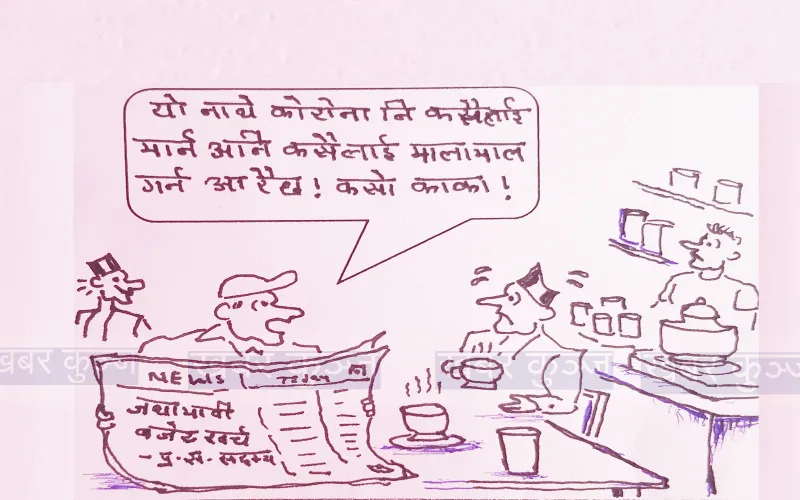 यो नाथे कोरोना नि कसैलाई
मार्न अनि कसैलाई मालामाल
गर्न आ रैछ! कसो काका!
NEWS
Today
जथाभावी
बजेट खर्च
- प्र. स. सदस्य
खबर कुञ्ज
खबर कुञ्ज
खबर कुञ्ज
खबर कुञ्ज